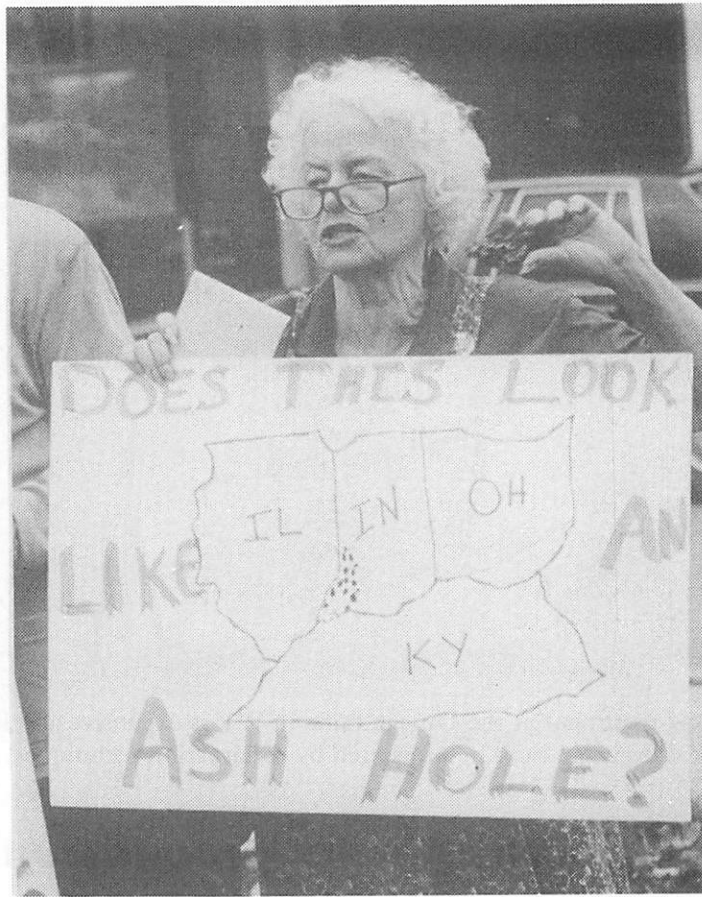 DOES THIS LOOK
LIKE
AN
IL
IN
OH
KY
ASH HOLE?